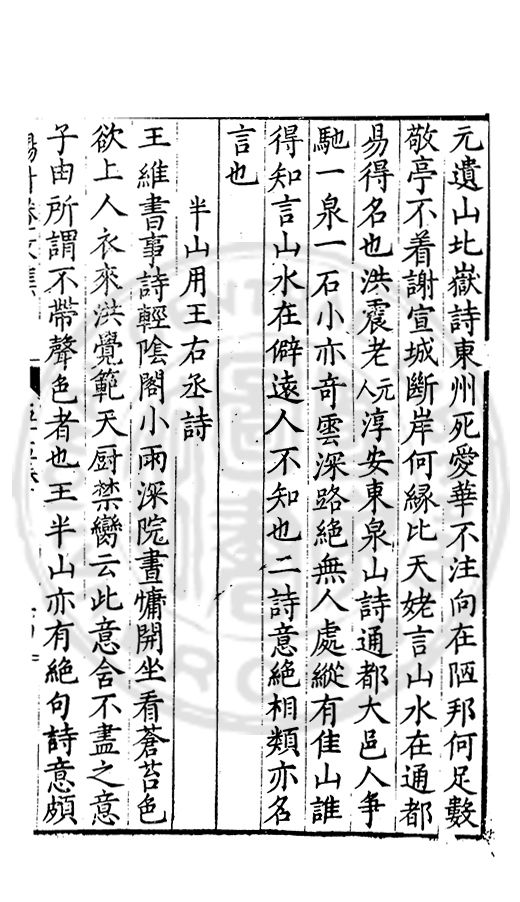 元遺山北嶽詩東州死愛華不注向在陋邦何足數
敬亭不着謝宣城斷岸何緣比天姥言山水在通都
易得名也洪震老元人淳安東泉山詩通都大邑人爭
馳一泉一石小亦奇雲深路絶無人處縱有佳山誰
得知言山水在僻遠人不知也二詩意絶相類亦名
言也
半山用王右丞詩
王維書事詩輕陰閣小雨深院晝慵開坐看蒼苔色
欲上人衣來洪覺範天厨禁臠云此意含不盡之意
子由所謂不帶聲色者也王半山亦有絶句詩意頗